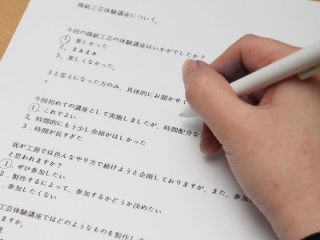 錦紙工芸体験講座について。
今回の錦紙工芸の体験講座はいかがでしたか？
①．楽しかった
2．まぁまぁ
3．楽しくなかった。
3と答えになった方のみ、具体的にお聞かせく
今回初めての講座として実施しましたが、時間配分な
①．これでよい
2．時間的にもう少し余裕がほしかった
3．時間が長すぎた
我が工房では色んなやり方で続けようと企画しておりますが、また、参加
と思われますか？
①．ぜひ参加したい
2．製作するによって、参加するかどうか決めたい
．参加したくない
工芸体験講座ではどのようなものを製作し
ますか。